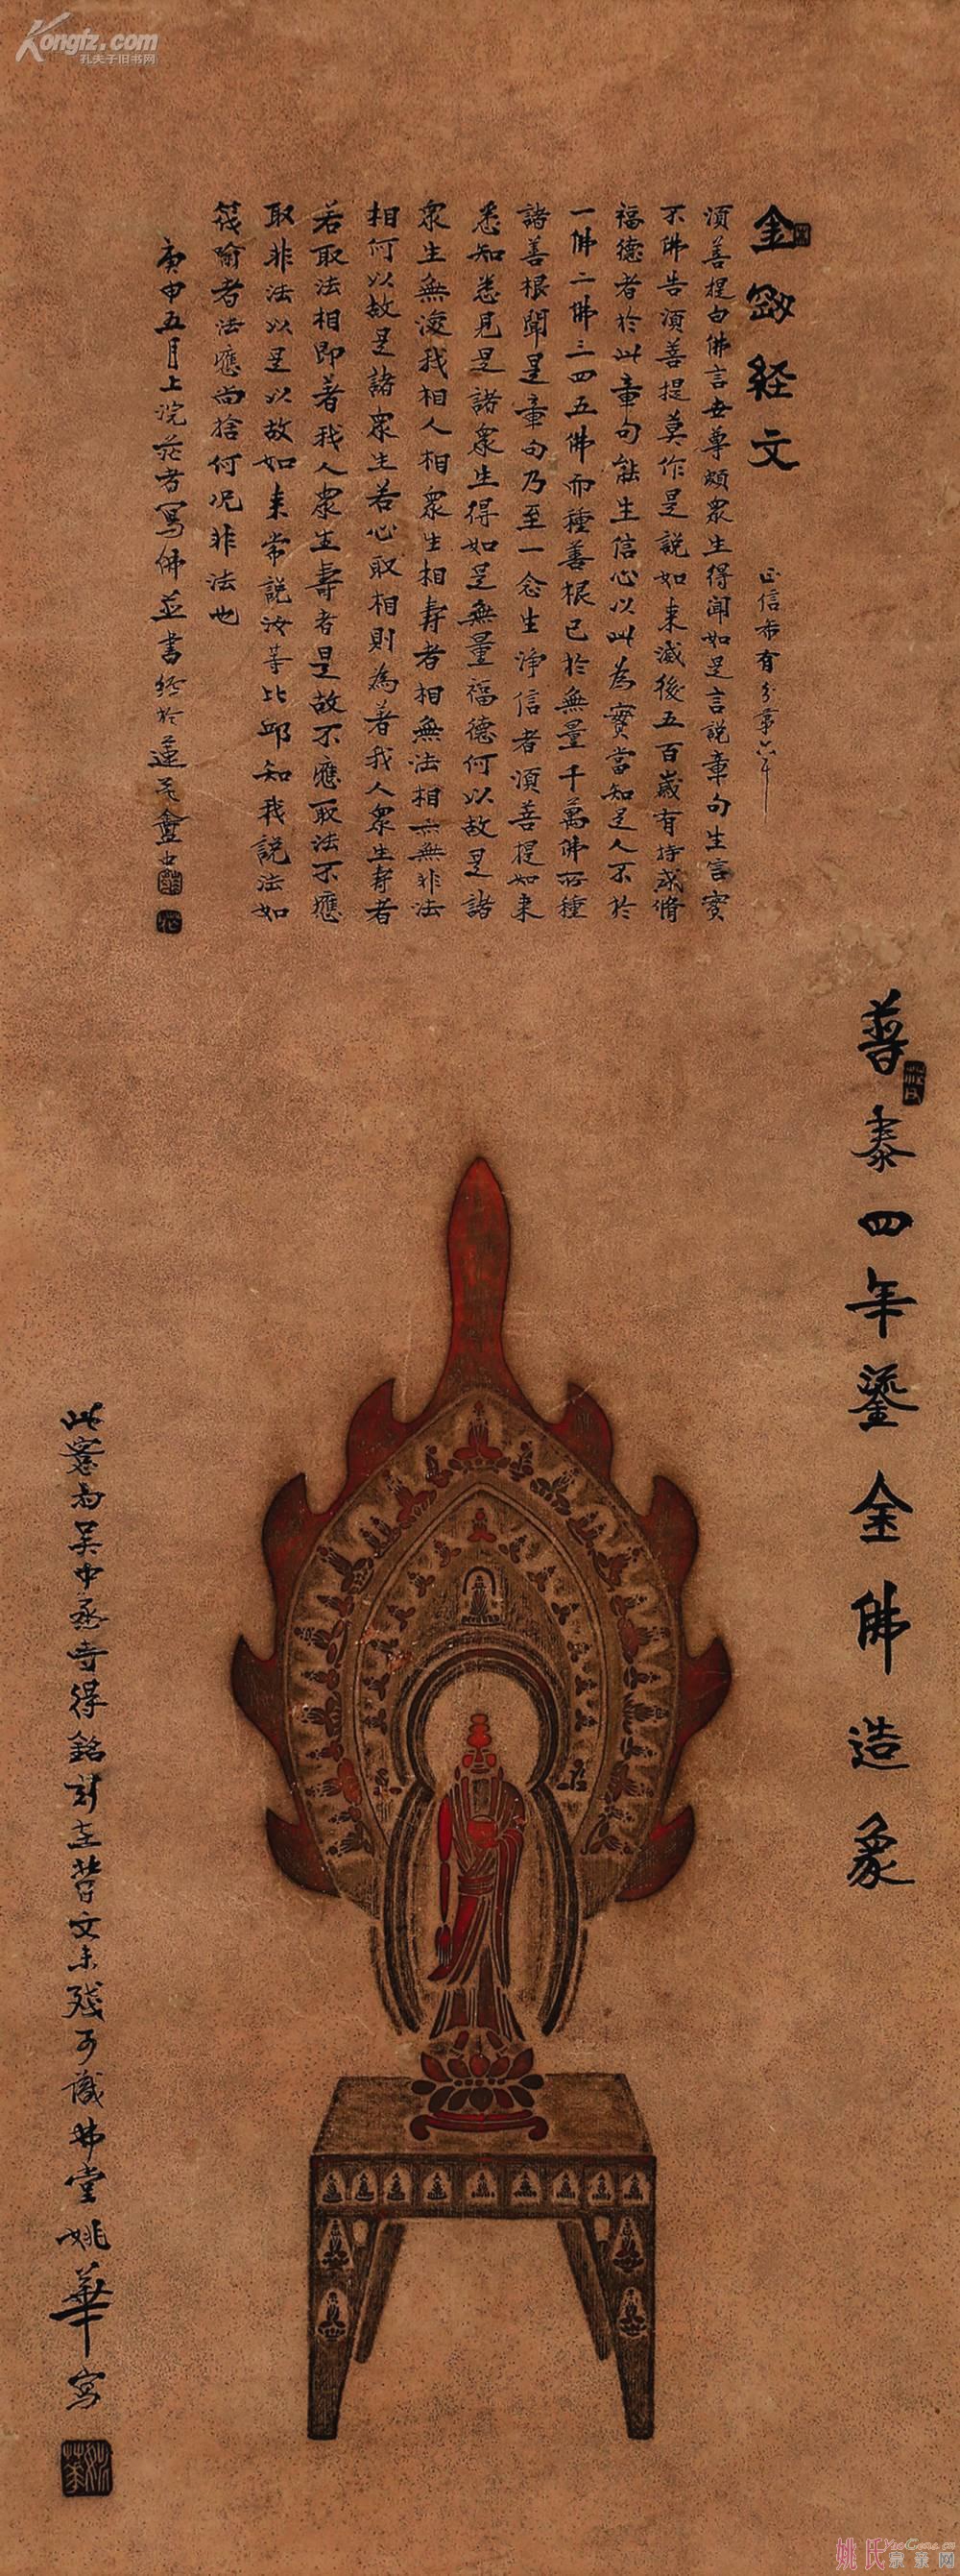 Kongfz.com
孔夫子旧书网
金剛経文
正信希有分第六
須菩提白佛言世尊頗衆生得聞如是言說章句生信實
不佛告須菩提莫作是説如来滅後五百歲有持戒脩
福德者於此章句能生信心以此為實當知是人不於
一佛二佛三四五佛而種善根已於無量千萬佛所種
諸善根聞是章句乃至一念生淨信者須菩提如来
悉知悉見是諸衆生得如是無量福德何以故是諸
衆生無復我相人相衆生相壽者相無法相亦無非法
相何以故是諸衆生若心取相則為著我人衆生寿者
若取法相即著我人衆生壽者是故不應取法不應
取非法以是以故如来常說汝等比邱知我說法如
筏喻者法應尚捨何况非法也
庚申五月上浣茫者寫佛並書經於蓮花盦中
普泰四年鎏金佛造象
此憲甫吴中丞寺得銘刻在背文未殘可識弗堂姚華寫
姚華
姚氏